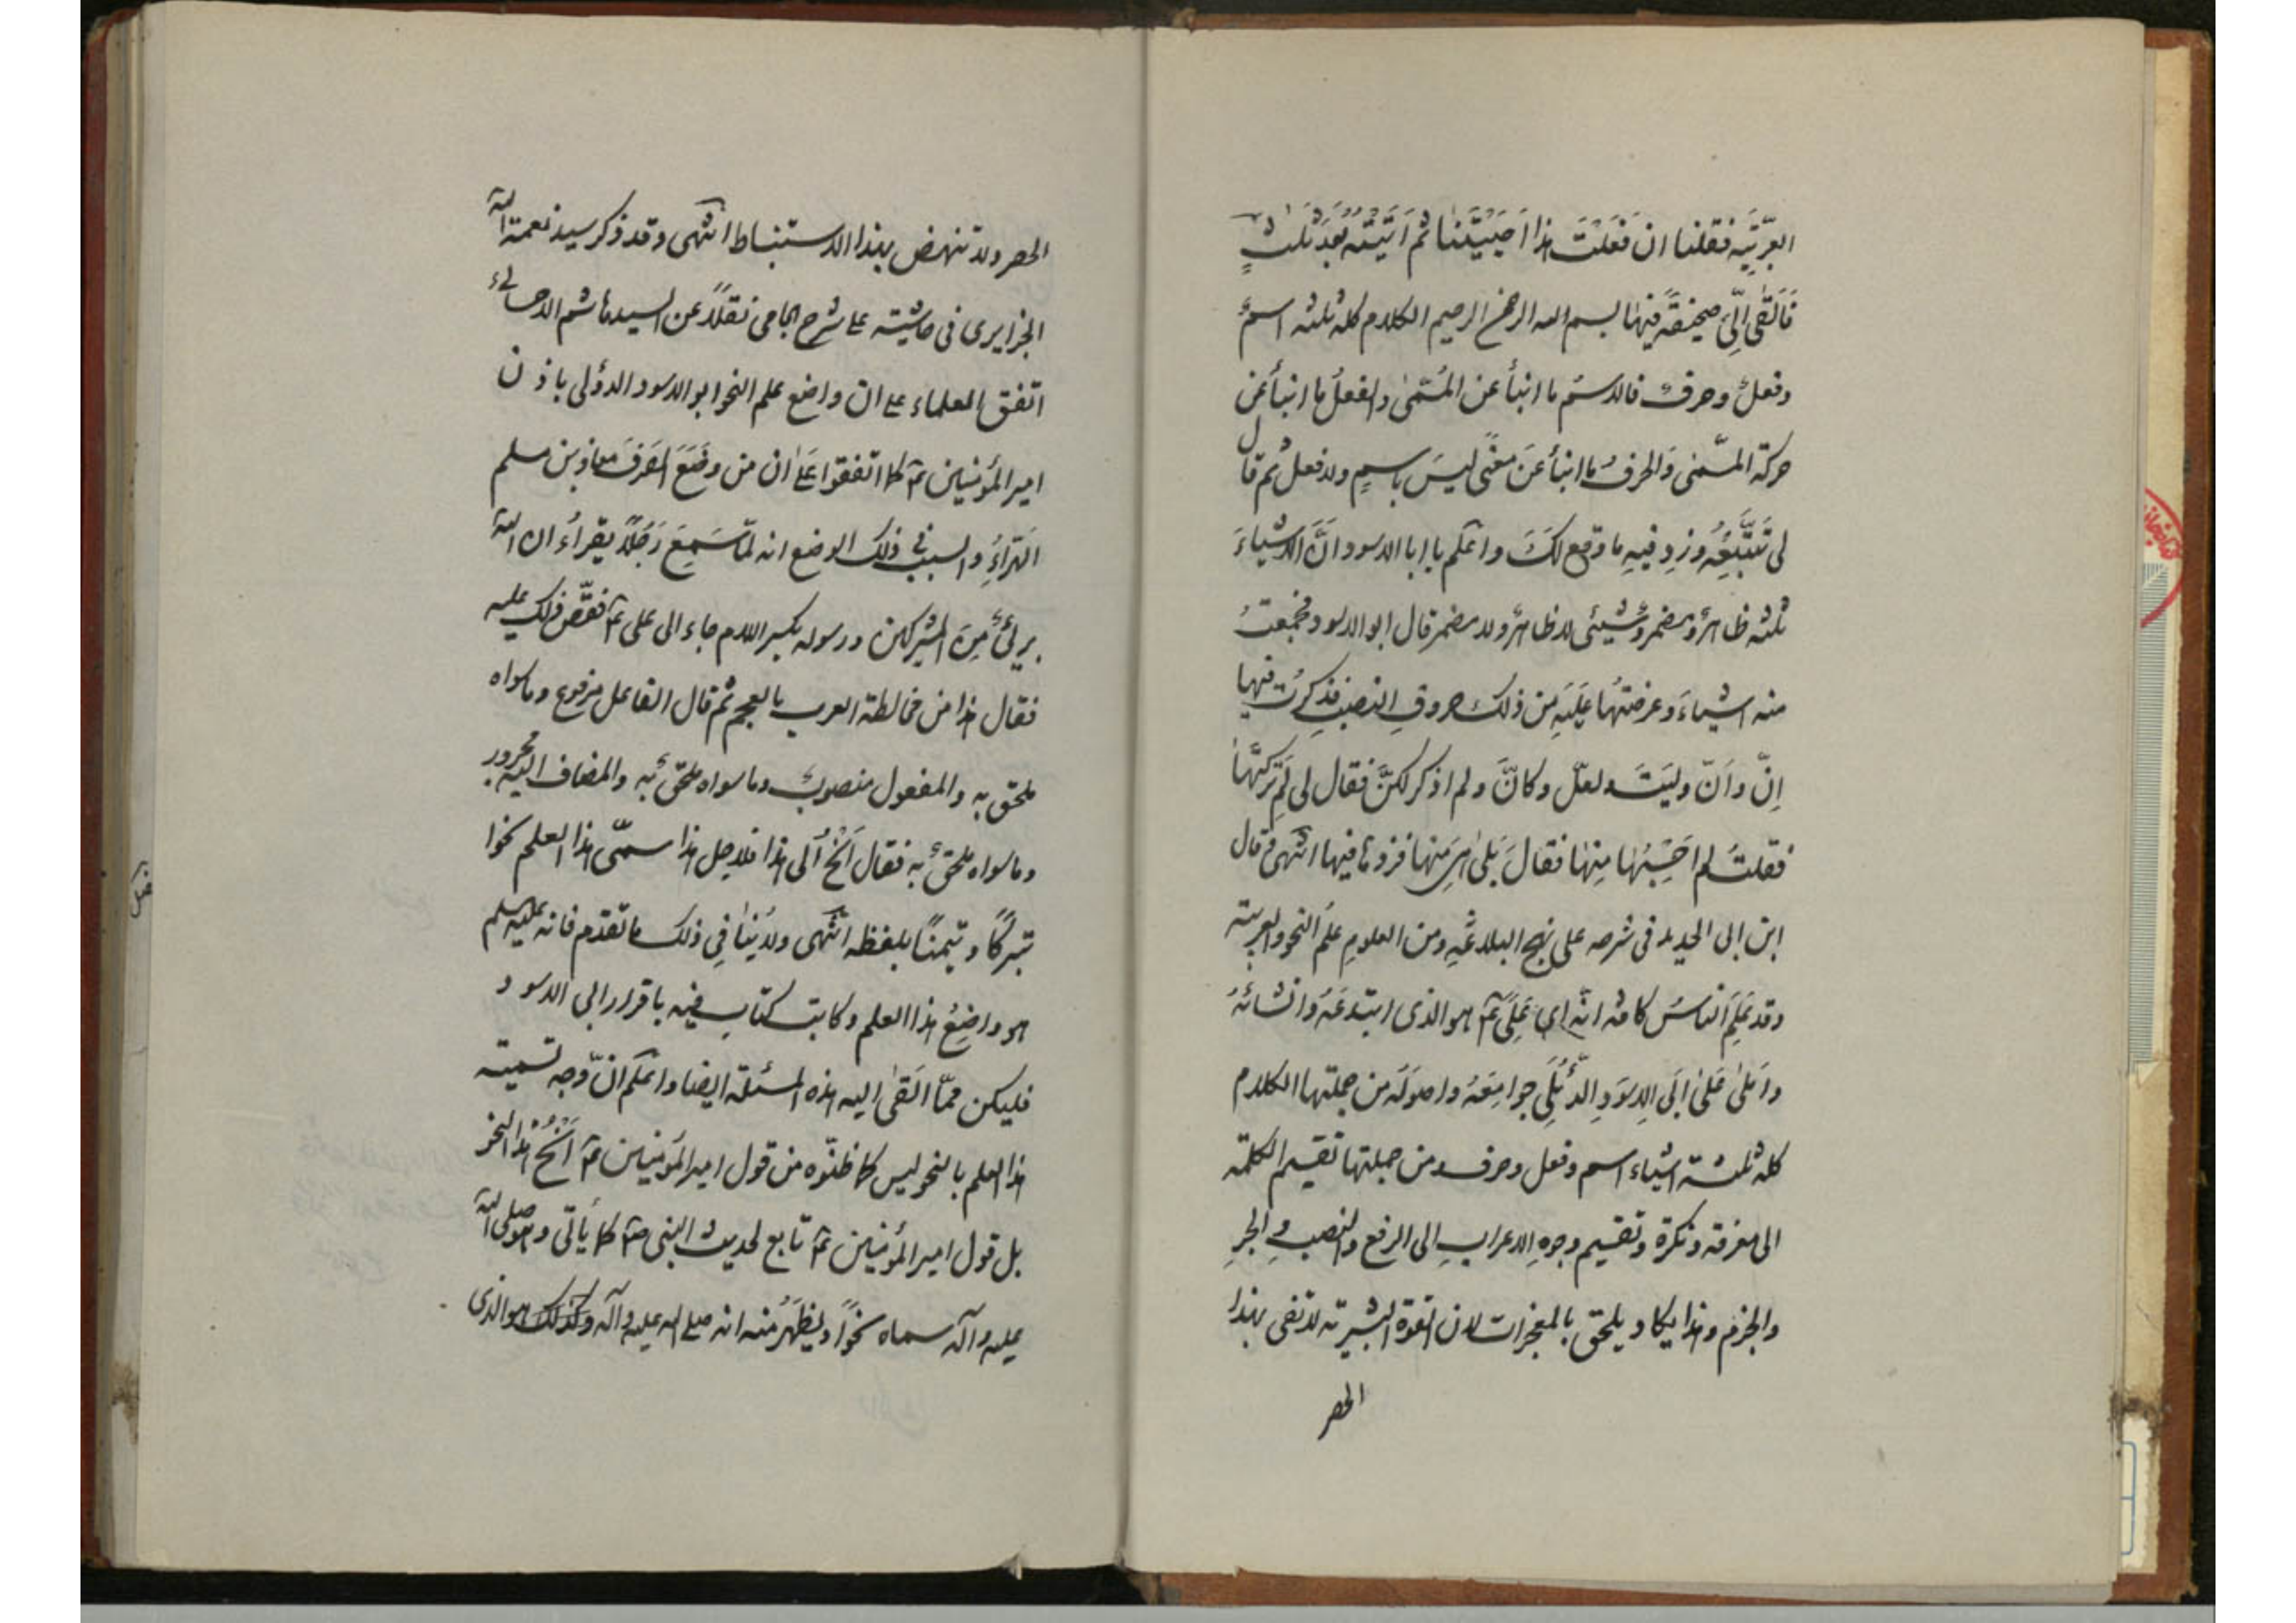 العربيّة فقلنا ان فعلت هذا احييتنا ثم اتيته بعد ثلث
فالقى الىّ صحيفة فيها بسم الله الرحمن الرحيم الكلام كله ثلثه اسم
وفعل وحرف فالاسم ما انبأ عن المسمّى والفعل ما انبأ عن
حركة المسّمى والحرف ما انبأ عن معنى ليس باسم ولا فعل ثم قال
لى تتبّعه وزد فيه ما وقع لك واعلم يا ابا الاسود انّ الاشياء
ثلثه ظاهر ومضمر وشيئى لا ظاهر ولا مضمر قال ابو الاسود فجمعت
منه اشياء وعرضتها عليه من ذلك حروف النصب فذكرت فيها
إنّ وأنّ وليت ولعلّ وكانّ ولم اذكر لكنّ فقال لى لم تركتها
فقلت لم احسبها منها فقال بلى هى منها فزدها فيها انتهى وقال
ابن ابى الحديد فى شرحه على نهج البلاغة ومن العلوم علم النحو والعربية
وقد علم الناس كافه انّه اى علىّ ع هو الذى ابتدعه وانشائه
واملى على ابى الاسود الدّئلى جوامعه واصوله من جملتها الكلام
كله ثلثة اشياء اسم وفعل وحرف ومن جملتها تقسيم الكلمة
الى معرفه ونكرة وتقسيم وجوه الاعراب الى الرفع والنصب والجر
والجزم وهذا يكاد يلحق بالمعجزات لان القوة البشرية لا تفى بهذا
الحصر
الحصر ولا تنهض بهذا الاستنباط انتهى وقد ذكر سيد نعمة الله
الجزايرى فى حاشيته على شرح الجامى نقلاً عن السيد هاشم الاحسائى
اتفق العلماء على ان واضع علم النحو ابو الاسود الدؤلى باذن
امير المؤمنين ع كما اتفقوا على ان من وضع الصرف معاذ بن مسلم
الهراء والسبب فى ذلك الوضع انه لمّا سمع رجلاً يقراء ان الله
برئ من المشركين ورسوله بكسر اللام جاء الى على ع فقصّ ذلك عليه
فقال هذا من مخالطة العرب بالعجم ثم قال الفاعل مرفوع وما سواه
ملحق به والمفعول منصوب وما سواه ملحق به والمضاف اليه مجرور
وما سواه ملحق به فقال انح الى هذا فلاجل هذا سمّى هذا العلم نحوا
تبركاً وتيمناً بلفظه انتهى ولا ينافى ذلك ما تقدم فانه عليه السلم
هو واضع هذا العلم وكاتب كتاب فيه باقرار ابى الاسود
فليكن ممّا القى اليه هذه المسئلة ايضا واعلم انّ وجه تسمية
هذا العلم بالنحو ليس كما ظنّوه من قول امير المؤمنين ع انح هذا النحو
بل قول امير المؤمنين ع تابع لحديث النبى ص كما يأتى وهو صلى الله
عليه وآله سماه نحواً ويظهر منه انه صلى الله عليه وآله وكذلك هو الذى